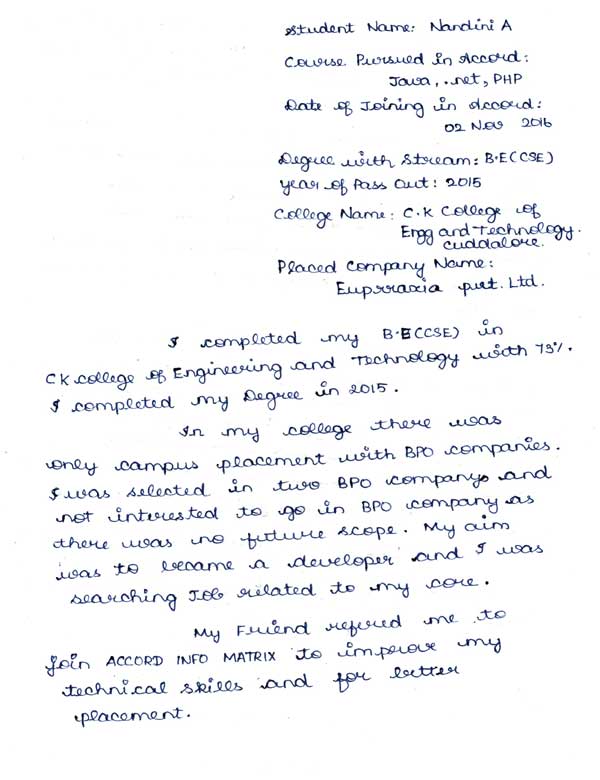 Student Name: Nandini A
Course Pursued in Accord:
Java, .net, PHP
Date of Joining in Accord:
02 Nov 2016
Degree with Stream: B.E(CSE)
year of Pass Out: 2015
College Name: C.K College of
Engg and Technology.
cuddalore.
Placed Company Name:
Euprraxia pvt. Ltd.
I completed my B.E(CSE) in
CK college of Engineering and Technology with 73%.
I completed my Degree in 2015.
In my college there was
only campus placement with BPO companies.
I was selected in two BPO companys and
not interested to go in BPO company as
there was no future scope. My aim
was to became a developer and I was
searching Job related to my core.
My Friend refered me to
join ACCORD INFO MATRIX to improve my
technical skills and for better
placement.